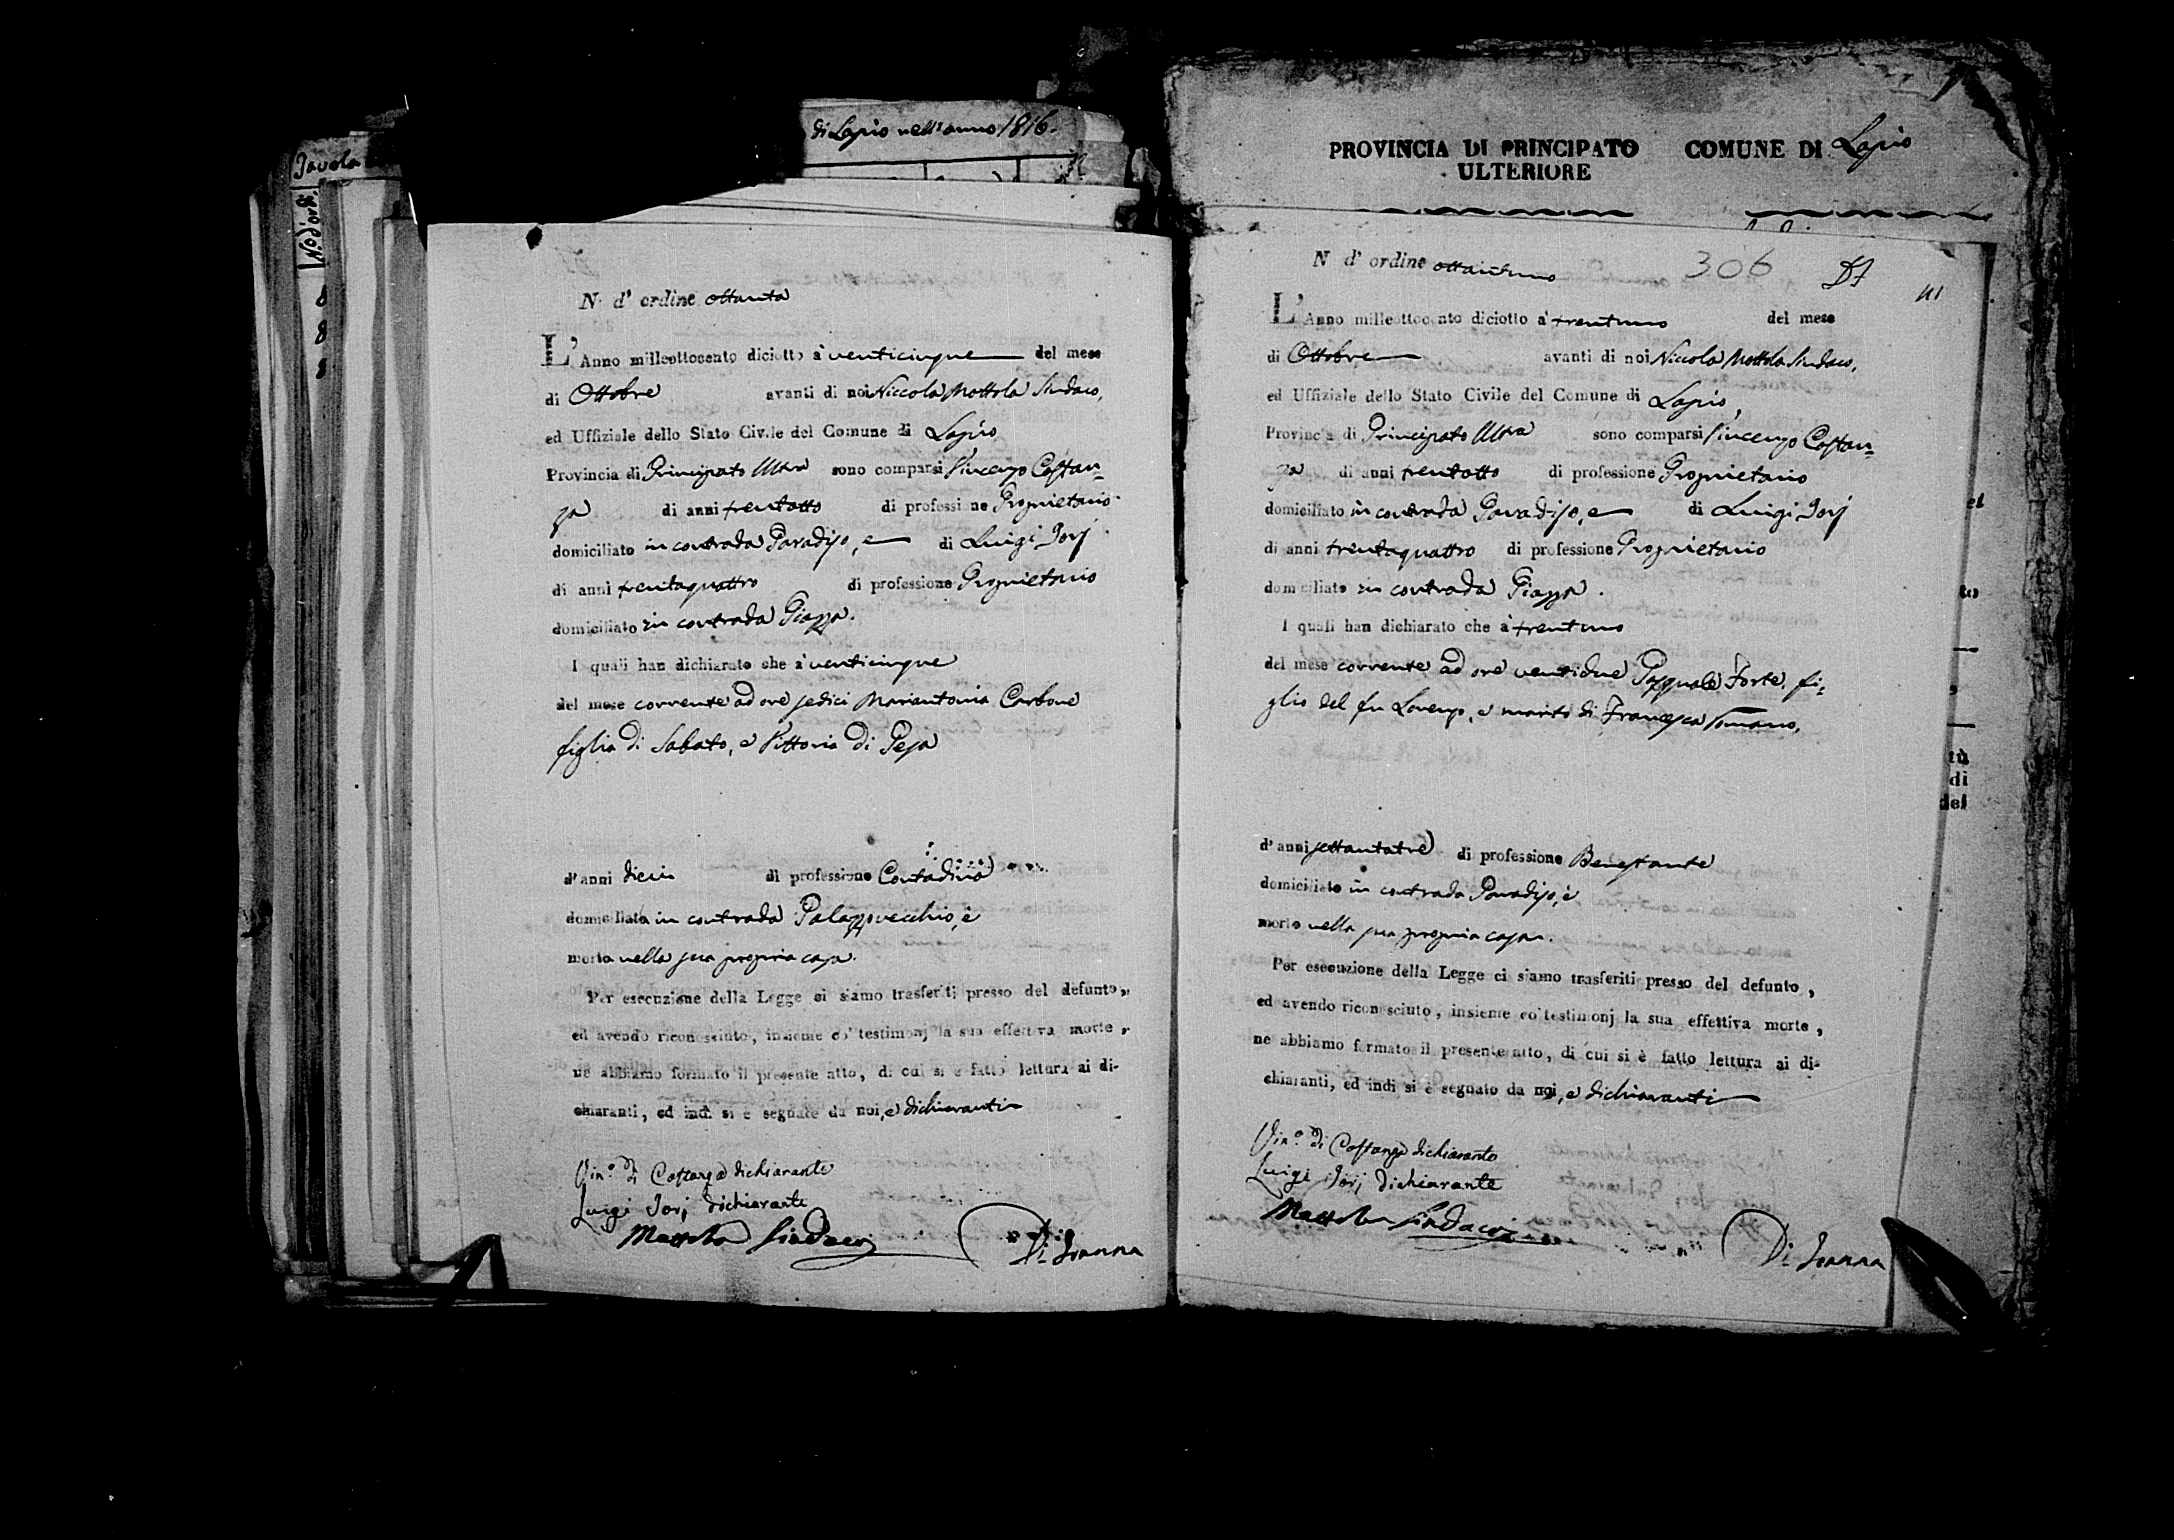 Tavola
di Lapio nell'anno 1816.
N. d'ord.
8
8
8
N. d' ordine ottanta
L'Anno milleottocento diciotto a' venticinque del mese
di Ottobre avanti di noi Niccola Mottola Sindaco,
ed Uffiziale dello Stato Civile del Comune di Lapio
Provincia di Principato Ultra sono comparsi Vincenzo Costan=
za di anni trentotto di professione Proprietario
domiciliato in contrada Paradiso, e di Luigi Iorj
di anni trentaquattro di professione Proprietario
domiciliato in contrada Piazza.
I quali han dichiarato che a' venticinque
del mese corrente ad ore sedici Mariantonia Carbone
figlia di Sabato, e Vittoria di Pesa
d'anni dieci di professione Contadina
domiciliata in contrada Palazzovecchio, è
morta nella sua propria casa.
Per esecuzione della Legge ci siamo trasferiti presso del defunto,
ed avendo riconosciuto, insieme co' testimonj la sua effettiva morte,
ne abbiamo formato il presente atto, di cui si è fatto lettura ai di-
chiaranti, ed indi si è segnato da noi, e dichiaranti
Vin.° di Costanza dichiarante
Luigi Iorj dichiarante
Mottola Sindaco
Di Ioanna
PROVINCIA DI PRINCIPATO COMUNE DI Lapio
ULTERIORE
N d' ordine ottantuno 306
L'Anno milleottocento diciotto a' trentuno del mese
di Ottobre avanti di noi Niccola Mottola Sindaco,
ed Uffiziale dello Stato Civile del Comune di Lapio,
Provincia di Principato Ultra sono comparsi Vincenzo Costan=
za di anni trentotto di professione Proprietario
domiciliato in contrada Paradiso, e di Luigi Iorj
di anni trentaquattro di professione Proprietario
domiciliato in contrada Piazza.
I quali han dichiarato che a' trentuno
del mese corrente ad ore ventidue Pasquale Forte, fi=
glio del fu Lorenzo, e marito di Francesca Romano,
d'anni settantatre di professione Benestante
domiciliato in contrada Paradiso, è
morto nella sua propria casa.
Per esecuzione della Legge ci siamo trasferiti presso del defunto,
ed avendo riconosciuto, insieme co' testimonj la sua effettiva morte,
ne abbiamo formato il presente atto, di cui si è fatto lettura ai di-
chiaranti, ed indi si è segnato da noi, e dichiaranti
Vin.° di Costanza dichiarante
Luigi Iorj dichiarante
Mottola Sindaco
Di Ioanna
et
to
tù
di
del